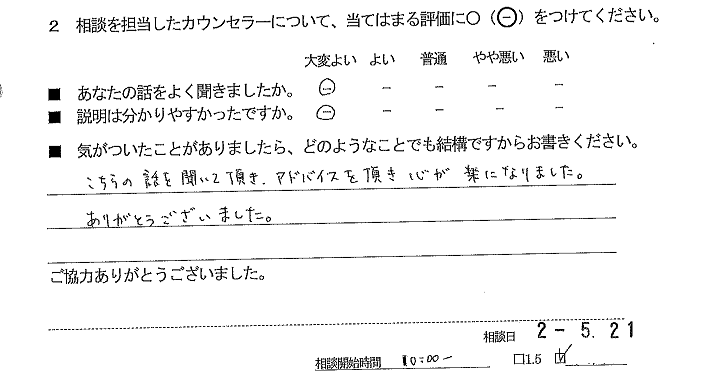 2 相談を担当したカウンセラーについて、当てはまる評価に○(⊖)をつけてください。
大変よい よい 普通 やや悪い 悪い
■ あなたの話をよく聞きましたか。 ⊖ － － － －
■ 説明は分かりやすかったですか。 ⊖ － － － －
■ 気がついたことがありましたら、どのようなことでも結構ですからお書きください。
こちらの話を聞いて頂き、アドバイスを頂き心が楽になりました。
ありがとうございました。
ご協力ありがとうございました。
相談日 2－5.21
相談開始時間 10:00－ □1.5 ☑